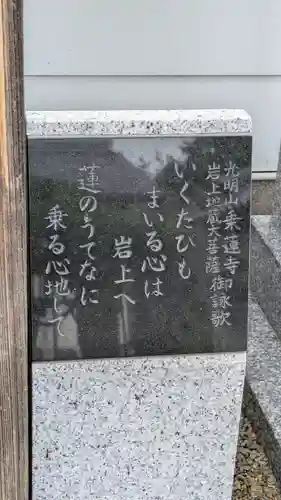 光明山乗蓮寺
岩上地蔵大菩薩御詠歌
いくたびも
まいる心は
岩上へ
蓮のうてなに
乗る心地して